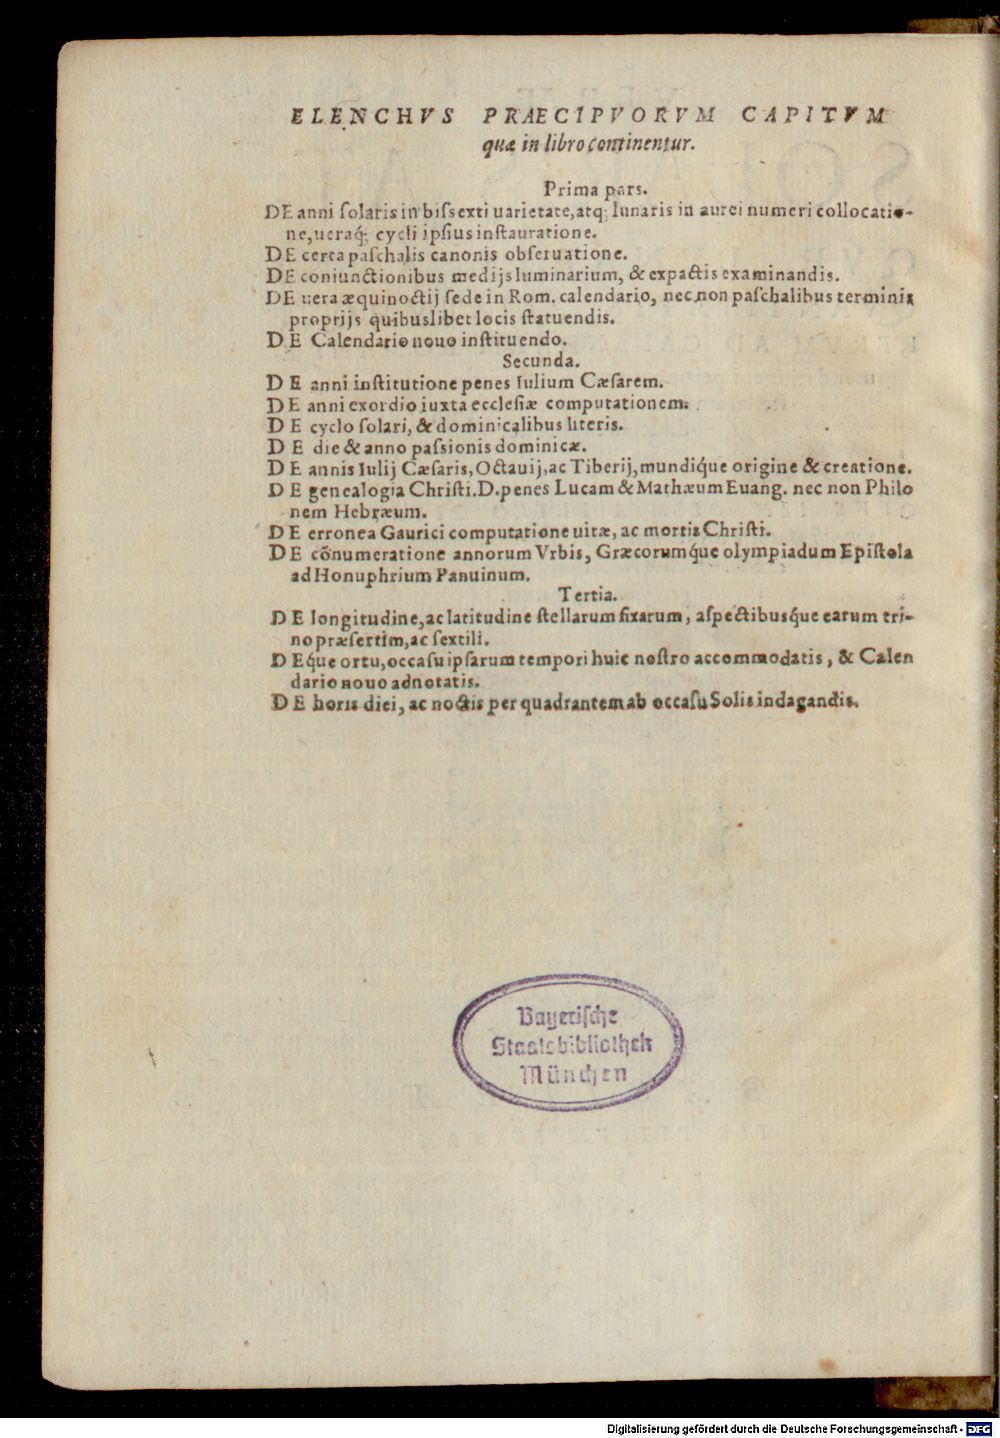 ELENCHVS PRAECIPVORVM CAPITVM
quæ in libro continentur.
Prima pars.
DE anni ſolaris in biſsexti uarietate, atq; lunaris in aurei numeri collocatio-
ne, ueraq́; cycli ipſius inſtauratione.
DE certa paſchalis canonis obſeruatione.
DE coniunctionibus medijs luminarium, & expactis examinandis.
DE uera æquinoctij ſede in Rom. calendario, nec non paſchalibus terminis
proprijs quibuslibet locis ſtatuendis.
DE Calendario nouo inſtituendo.
Secunda.
DE anni inſtitutione penes Iulium Cæſarem.
DE anni exordio iuxta eccleſiæ computationem.
DE cyclo ſolari, & dominicalibus literis.
DE die & anno paſsionis dominicæ.
DE annis Iulij Cæſaris, Octauij, ac Tiberij, mundiq́ue origine & creatione.
DE genealogia Chriſti. D. penes Lucam & Mathæum Euang. nec non Philo
nem Hebræum.
DE erronea Gaurici computatione uitæ, ac mortis Chriſti.
DE cõnumeratione annorum Vrbis, Græcorumq́ue olympiadum Epiſtola
ad Honuphrium Panuinum.
Tertia.
DE longitudine, ac latitudine ſtellarum fixarum, aſpectibusq́ue earum tri-
no præſertim, ac ſextili.
DEq́ue ortu, occaſu ipſarum tempori huic noſtro accommodatis, & Calen
dario nouo adnotatis.
DE horis diei, ac noctis per quadrantem ab occaſu Solis indagandis.
Bayeriſche
Staatsbibliothek
München
Digitalisierung gefördert durch die Deutsche Forschungsgemeinschaft - DFG